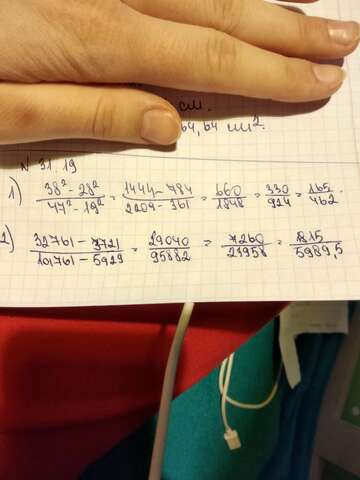 см.
64,64 см².
N 31.19
1) (38² - 28²)/(47² - 19²) = (1444 - 784)/(2209 - 361) = 660/1848 = 330/924 = 165/462.
2) (32761 - 3721)/(101761 - 5929) = 29040/95882 = 7260/21958 = 1815/5989,5